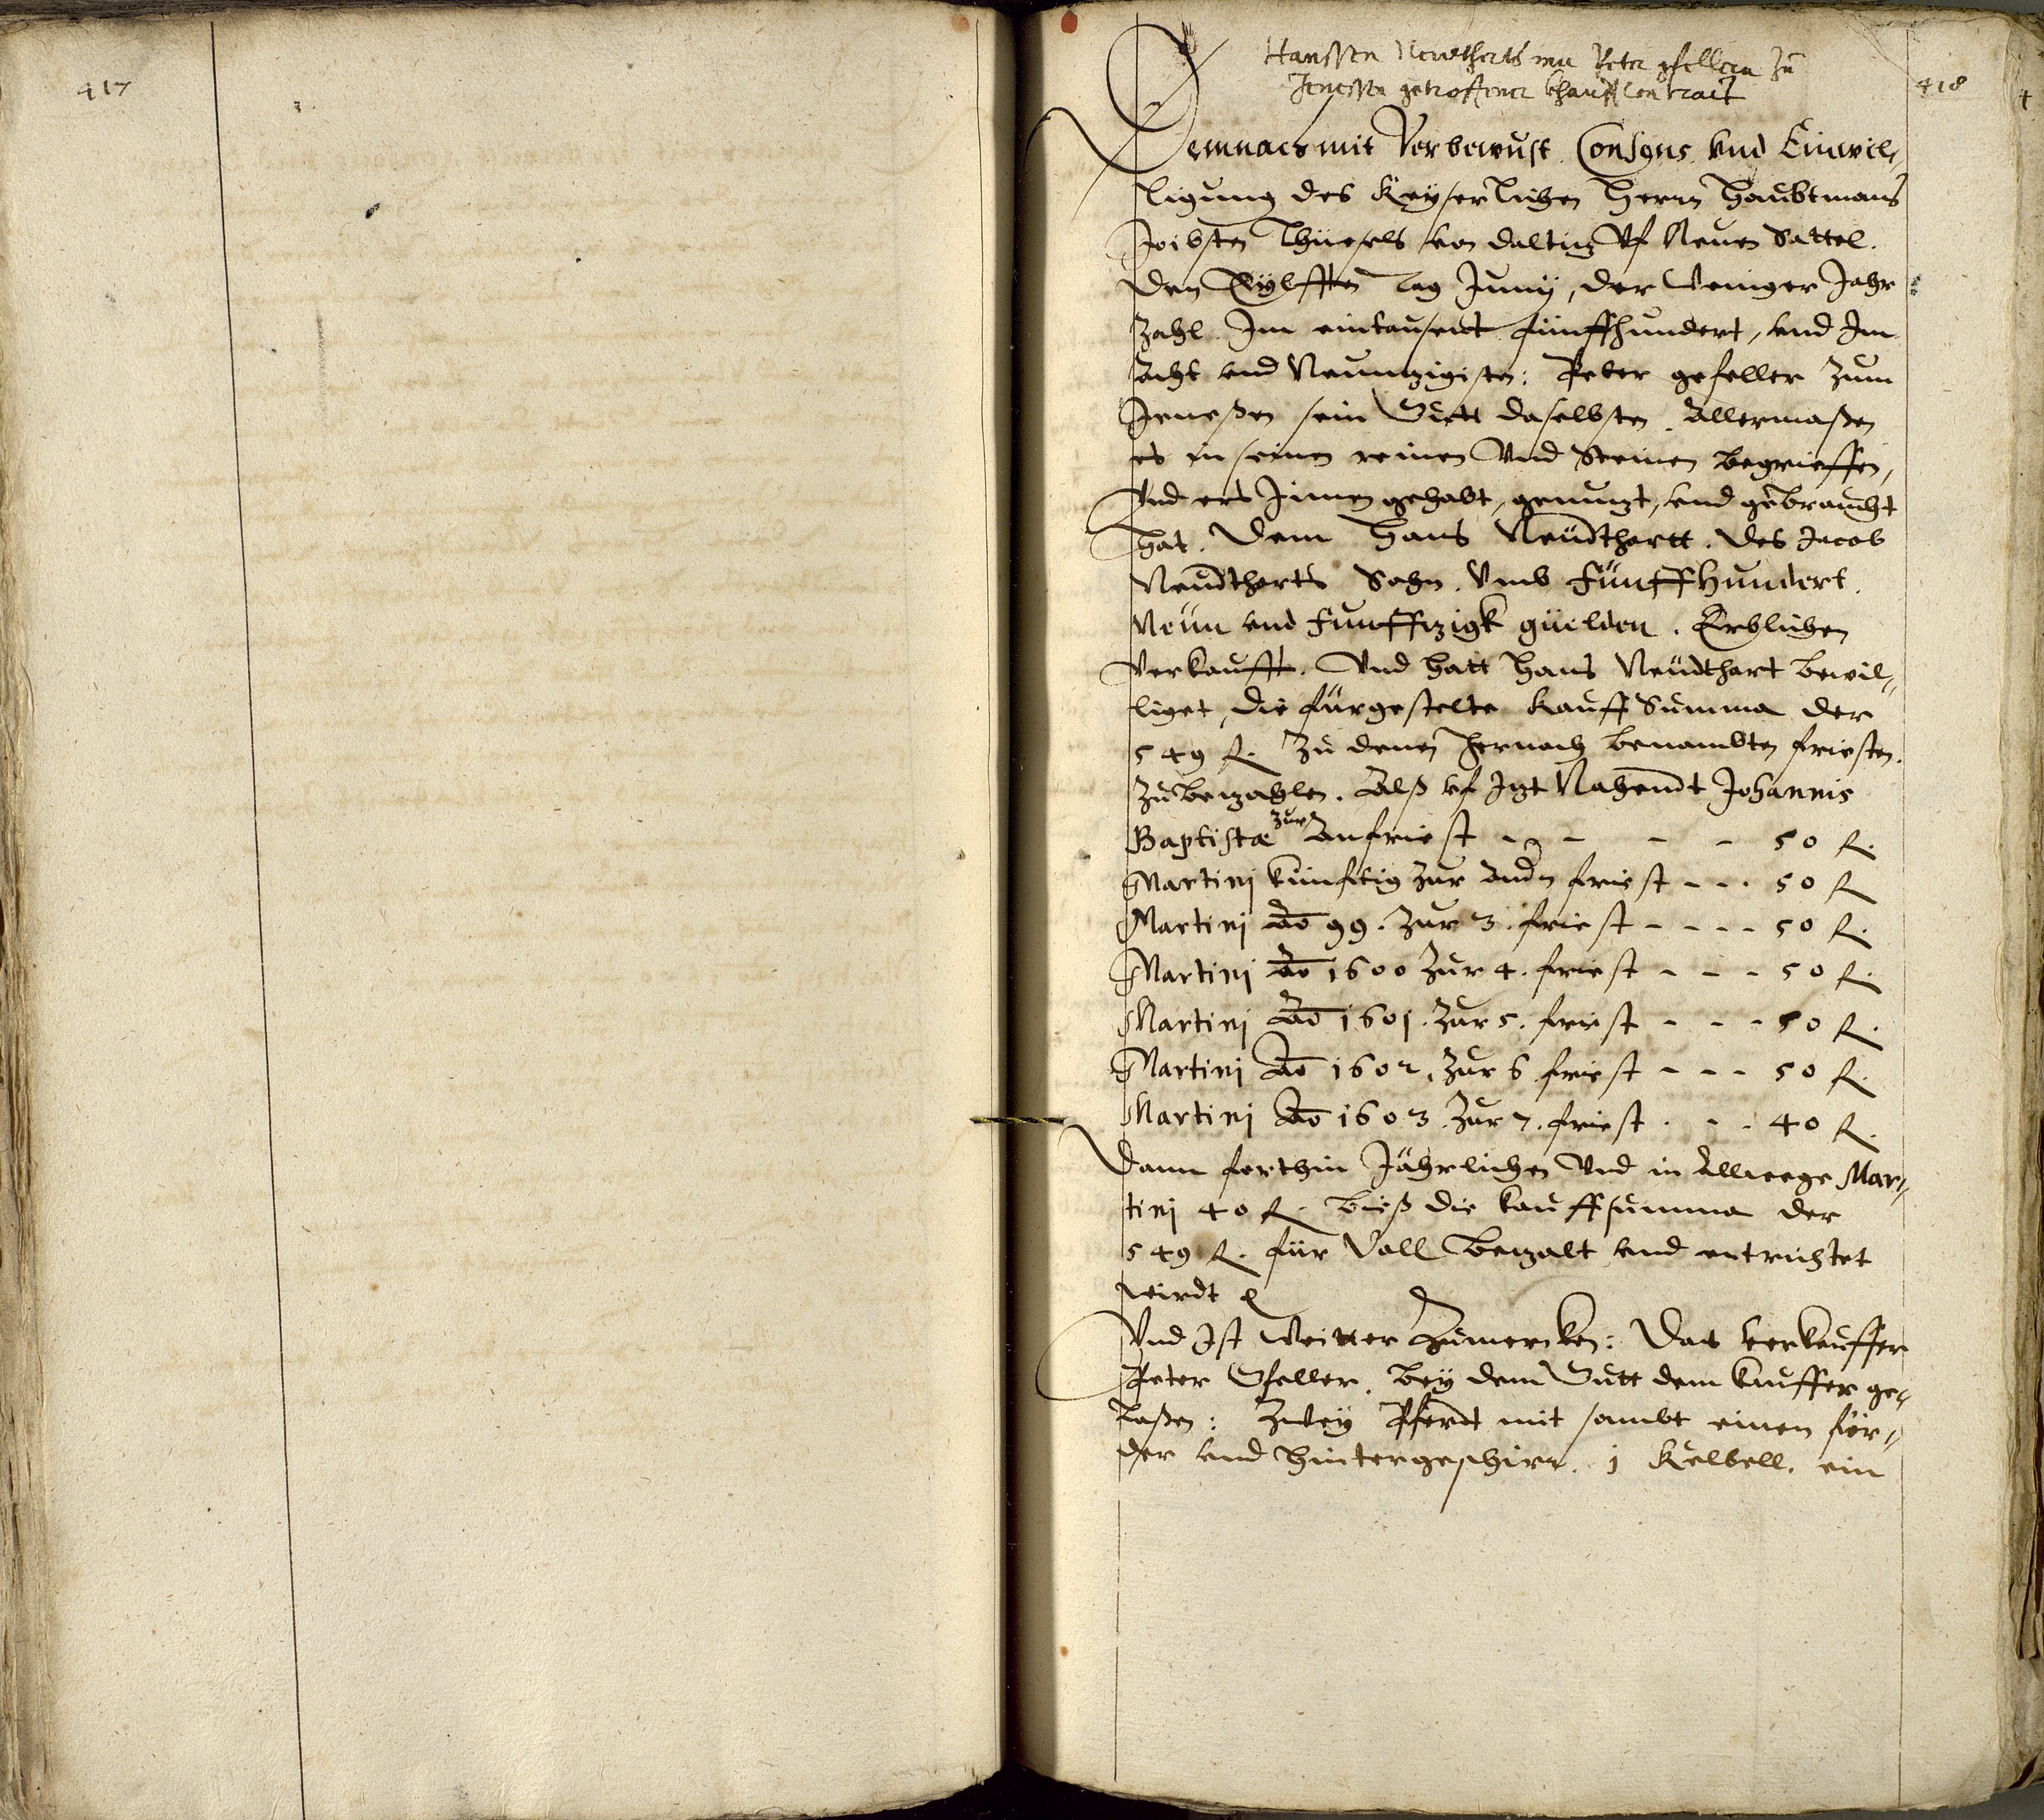 417
418
Hanssen Neudtharts mit Peter gfellern Zu
Jenessen getroffener khauff Contract
Demnach mit Vorbewust. Consens. vnd Einwil⸗
ligung des Keyserlichen Herrn Haubtmans
Jobsten Thüesels von daltitz Vf Neuen Sattel.
den Eylfften tag Junij, der Weniger Jahr
Zahl. Im eintausent fünffhundert, vnd Im
acht vnd Neuntzigisten: Peter gefeller Zum
Jeneßen sein Guett daselbsten. Allermaßen
es in seinen reinen Vnd Steinen begrieffen,
Vnd ers Innen gehabt, genutzt, vnd gebraucht
hat. Dem Hans Neüdthartt. des Jacob
Neudtharts Sohn. Vmb fünffhundert.
Neün vnd fünfftzigk güelden. Erblichen
Verkaufft. Vnd hatt Hans Neüdthart bewil⸗
liget, die fürgestelte Kauff Summa der
549 fl. Zu denen hernach benambten friesten.
Zubezahlen. Alß vf Jtzt Nahendt Johannis
Baptistæ zur Anfriest - - - - 50 fl.
Martinj künfftig Zur Andn friest - - - 50 fl
Martinj Ao 99. Zur 3. friest - - - - 50 fl.
Martinj Ao 1600 Zur 4. friest - - - 50 fl.
Martinj Ao 1601. Zur 5. friest - - - 50 fl.
Martinj Ao 1602. Zur 6 friest - - - 50 fl.
Martinj Ao 1603. Zur 7. friest . - - 40 fl.
Dann forthin Jährlichen Vnd in Allwege Mar⸗
tinj 40 fl. bieß die kauffsumma der
549 fl. für Voll betzalt vnd entrichtet
wirdt
Vnd Ist Weitter Zumercken: Das verkauffer
Peter Gfeller. bey dem Gutt dem kauffer ge⸗
laßen: Zwey Pferdt mit sambt einen för⸗
der vnd hintergeschirr. 1 Kelbell. ein